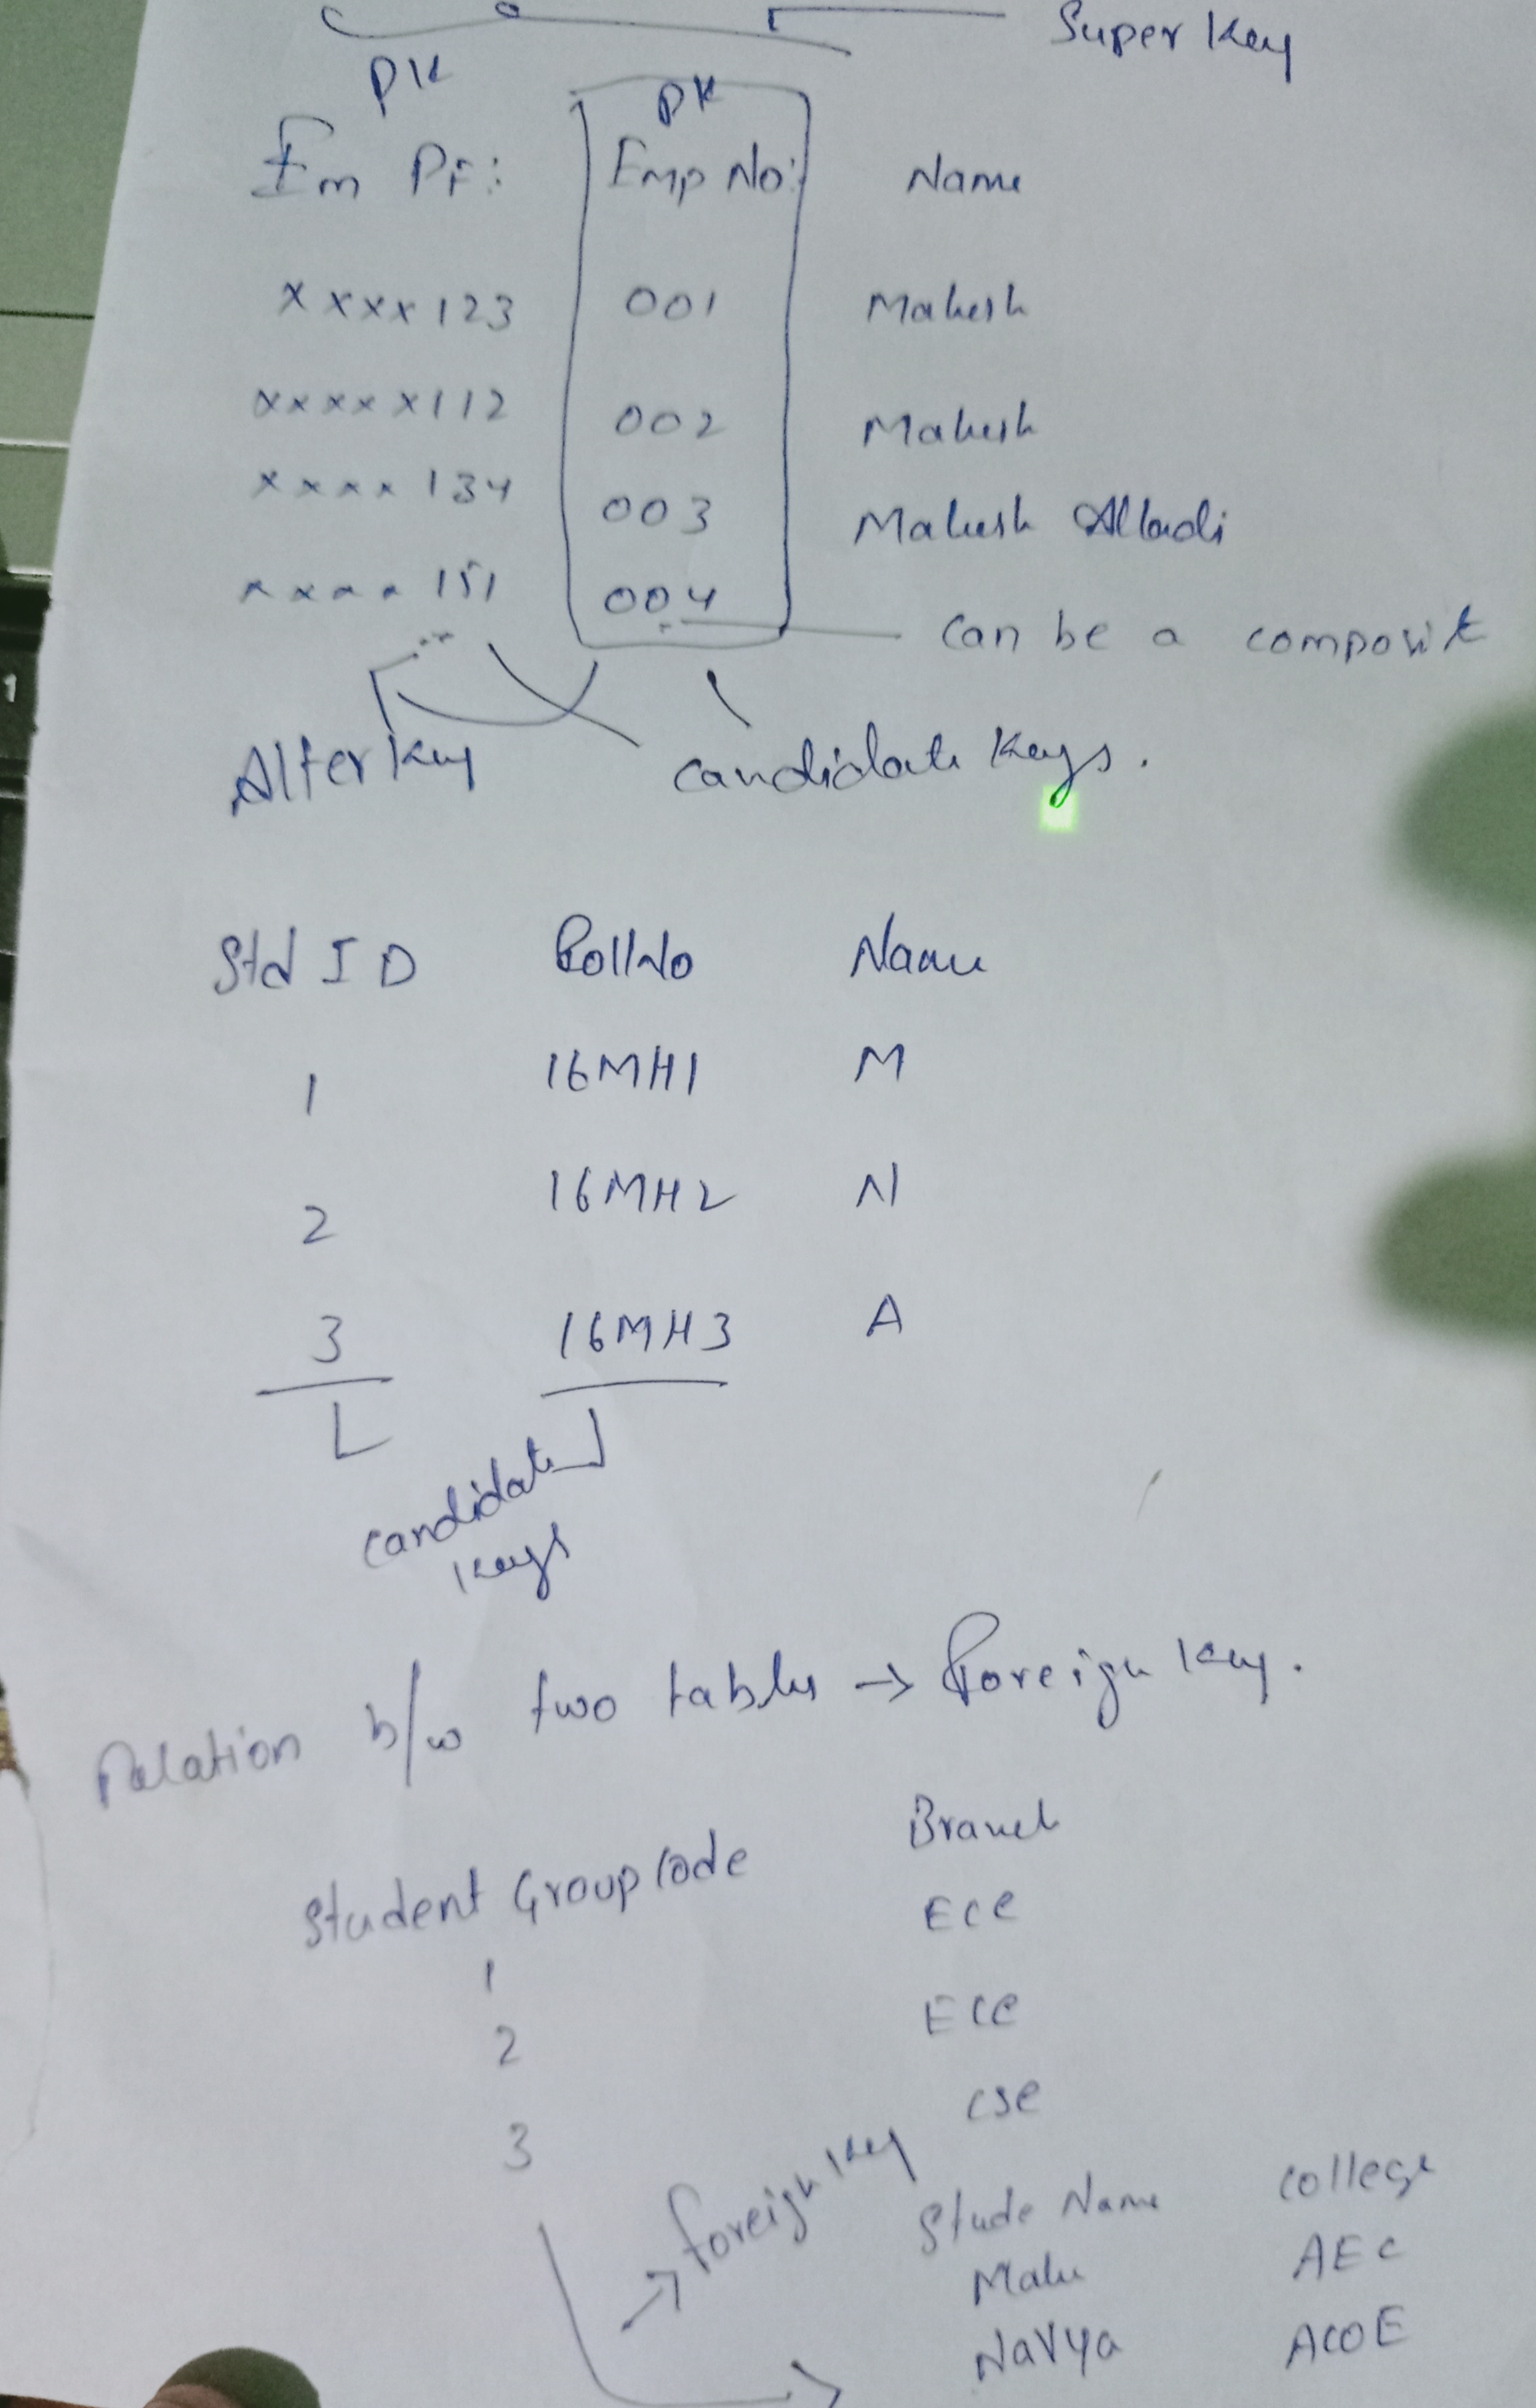 Super Key
PK PK
Em PF: Emp No: Name
xxxx123 001 Mahesh
xxxxx112 002 Mahesh
xxxx134 003 Mahesh Alladi
xxxx151 004
can be a composit
Alter key candidate keys.
Std ID RollNo Name
1 16MH1 M
2 16MH2 N
3 16MH3 A
candidate
keys
Relation b/w two tables → Foreign key.
Student Group code Branch
1 ECE
2 ECE
3 CSE
→ foreign key
Stude Name College
Mahe AEC
Navya ACOE